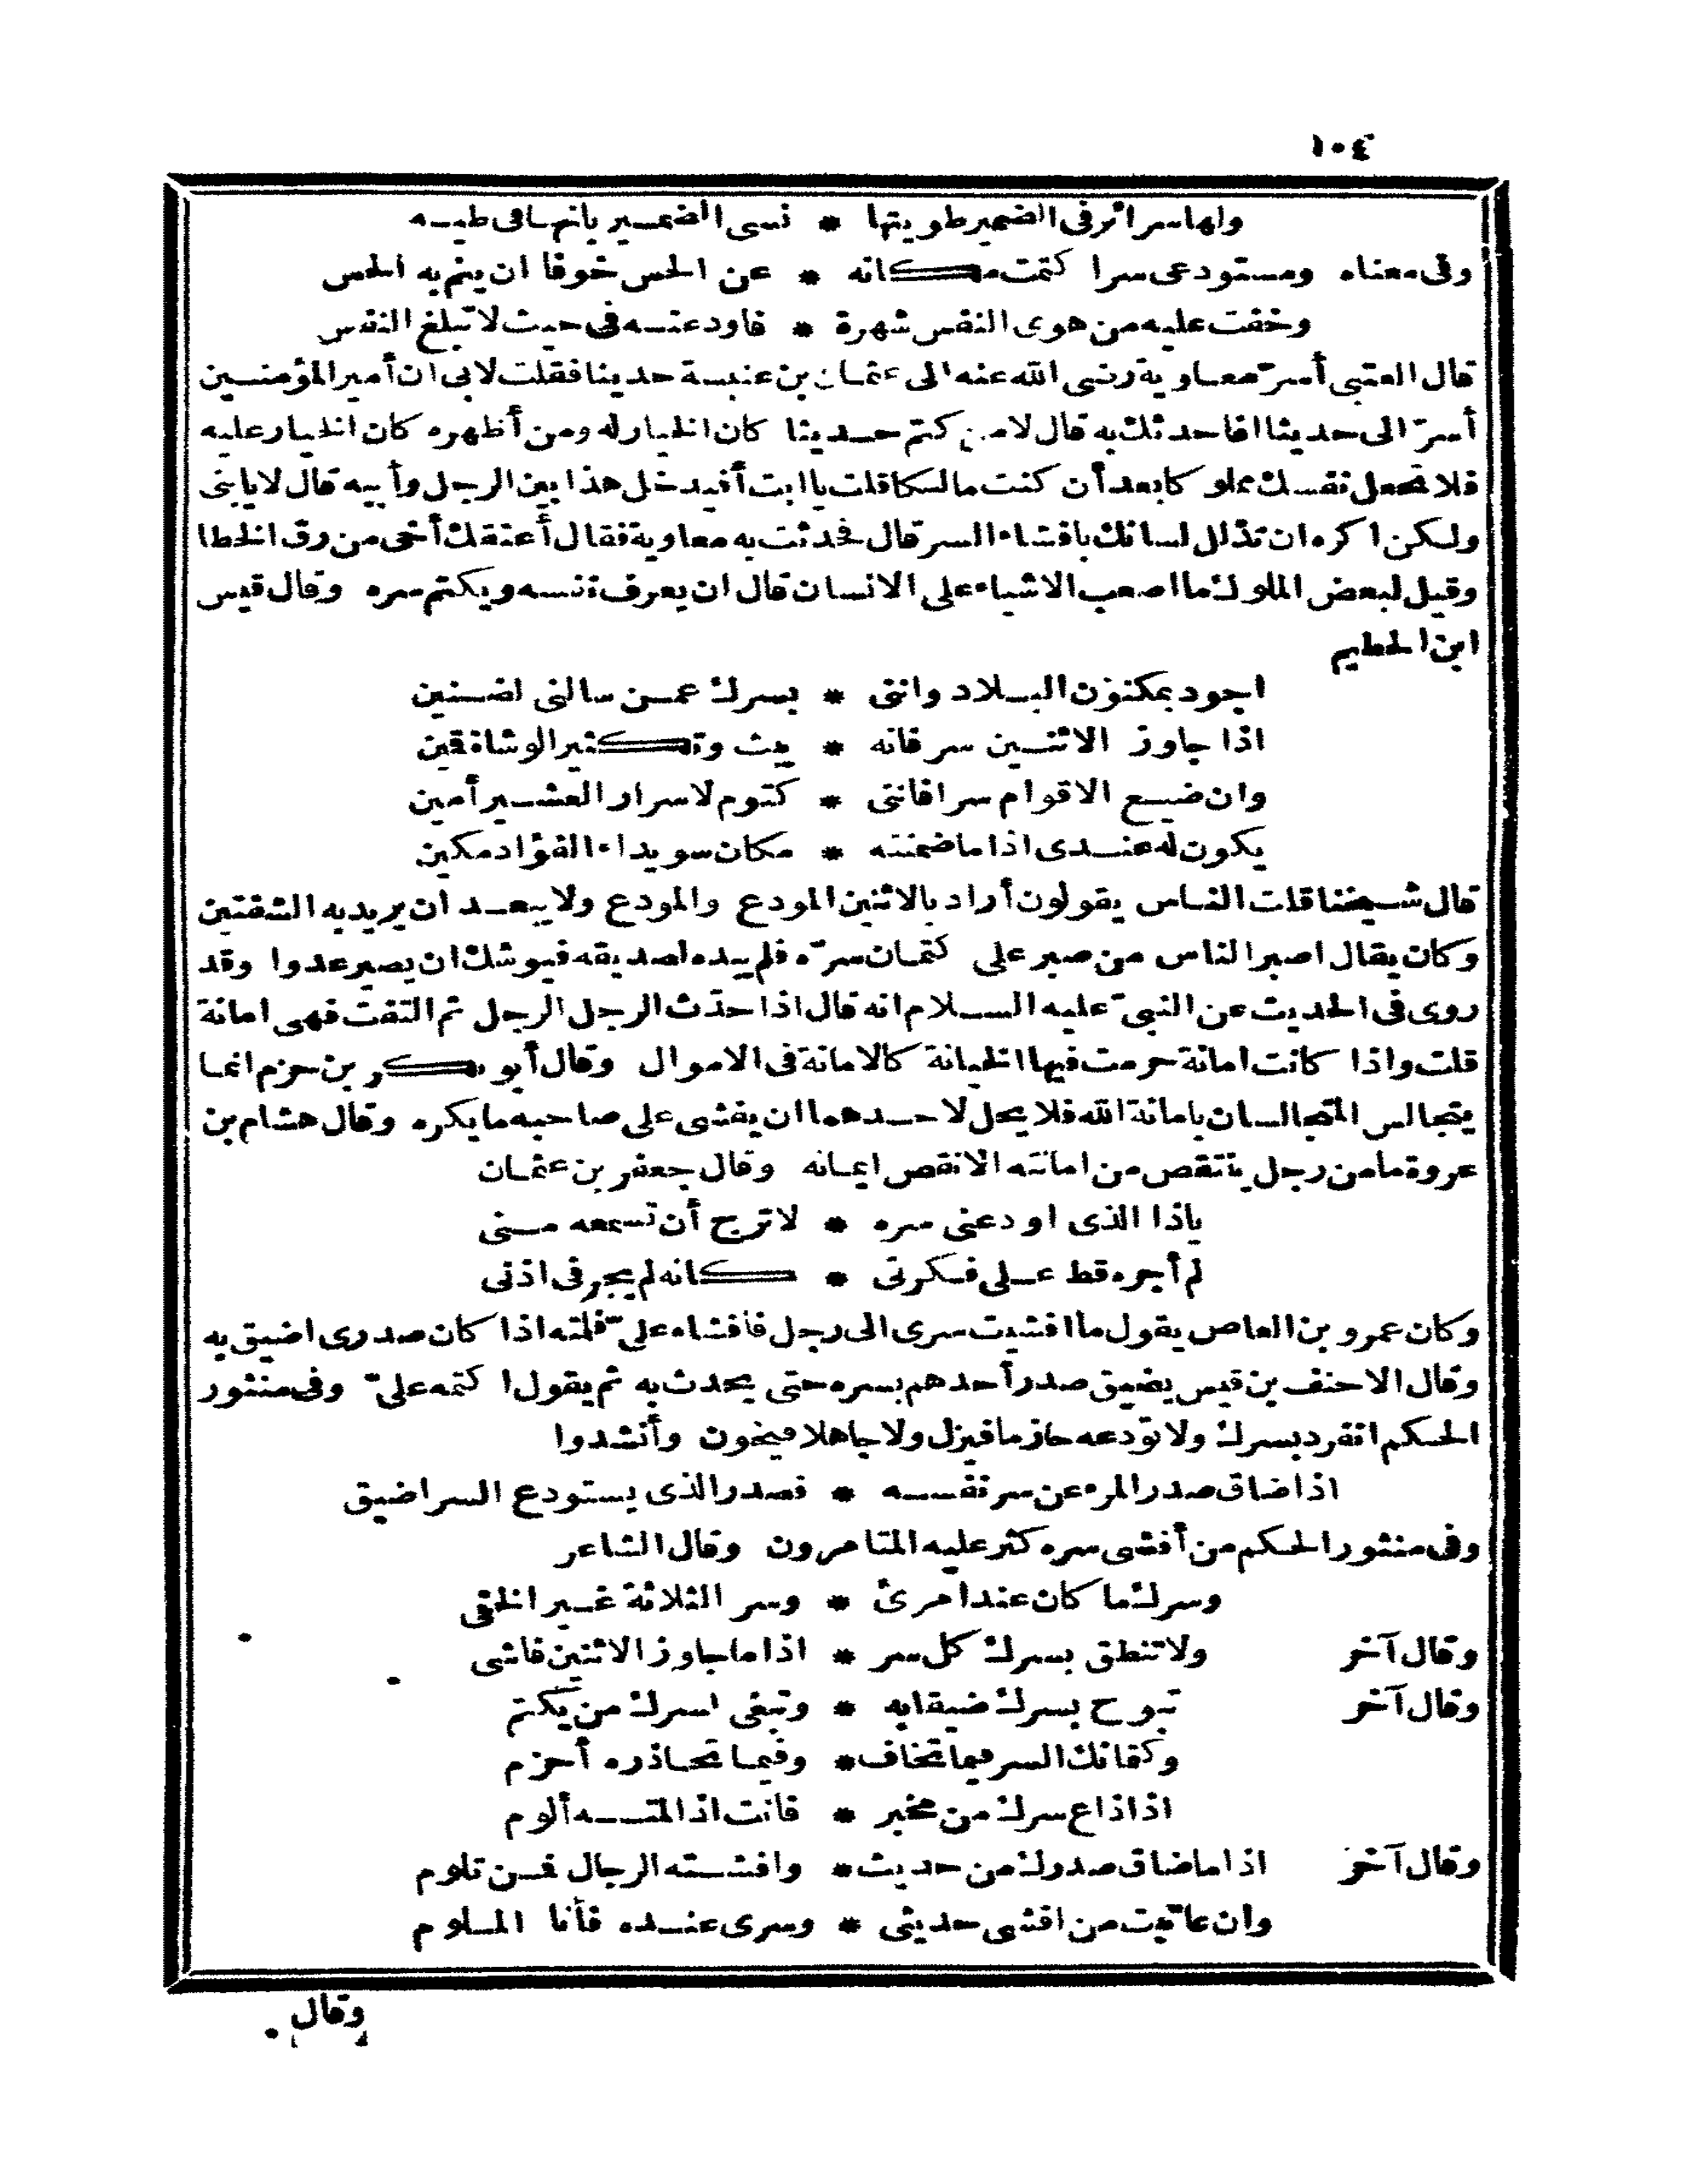 ١٠٤
ولها سرائر فى الضمير طويتها * نسى الضمير بانها فى طيه
وفى معناه ومستودعى سرا كتمت مكانه * عن الحس خوفا ان ينم به الحس
وخفت عليه من هوى النفس شهرة * فاودعته فى حيث لا تبلغ النفس
قال العتبى أسرّ معاوية رضى الله عنه الى عثمان بن عنبسة حديثا فقلت لابى ان أمير المؤمنين
أسرّ الى حديثا افاحدثك به قال لا من كتم حديثا كان الخيار له ومن أظهره كان الخيار عليه
فلا تجعل نفسك مملوكا بعد أن كنت مالكا قلت يا ابت أفيدخل هذا بين الرجل وأبيه قال لا يابنى
ولكن اكره ان تذلل لسانك بافشاء السر قال فحدثت به معاوية فقال أعتقك أخى من رق الخطا
وقيل لبعض الملوك ما اصعب الاشياء على الانسان قال ان يعرف نفسه ويكتم سره وقال قيس
ابن الخطيم
اجود بمكنون البلاد واننى * بسرك عمن سالنى لضنين
اذا جاوز الاثنين سر فانه * يبث وتكثير الوشاة قين
وان ضيع الاقوام سرا فاننى * كتوم لاسرار العشير أمين
يكون له عندى اذا ما ضمنته * مكان سويداء الفؤاد مكين
قال شيخنا قلت الناس يقولون أراد بالاثنين المودع والمودع ولا يبعد ان يريد به الشفتين
وكان يقال اصبر الناس من صبر على كتمان سرّه فلم يبده لصديقه فيوشك ان يصير عدوا وقد
روى فى الحديث عن النبىّ عليه السلام انه قال اذا حدّث الرجل الرجل ثم التفت فهى امانة
قلت واذا كانت امانة حرمت فيها الخيانة كالامانة فى الاموال وقال أبو بكر بن حزم انما
يتجالس المتجالسان بامانة الله فلا يحل لاحدهما ان يفشى على صاحبه ما يكره وقال هشام بن
عروة ما من رجل ينتقص من امانته الا نقص ايمانه وقال جعفر بن عثمان
ياذا الذى اودعنى سره * لا ترج أن تسمعه منى
لم أجره قط على فكرتى * كانه لم يجر فى اذنى
وكان عمرو بن العاص يقول ما افشيت سرى الى رجل فافشاه علىّ فلمته اذا كان صدرى اضيق به
وقال الاحنف بن قيس يضيق صدر أحدهم بسره حتى يحدث به ثم يقول اكتمه علىّ وفى منثور
الحكم انفرد بسرك ولا تودعه حازما فيزل ولا جاهلا فيخون وأنشدوا
اذا ضاق صدر المرء عن سر نفسه * فصدر الذى يستودع السر اضيق
وفى منثور الحكم من أفشى سره كثر عليه المتامرون وقال الشاعر
وسرك ما كان عند امرئ * وسر الثلاثة غير الخفى
وقال آخر ولا تنطق بسرك كل سر * اذا ما جاوز الاثنين فاشى
وقال آخر تبوح بسرك ضيقا به * وتبغى لسرك من يكتم
وكتمانك السر فيما تخاف * وفيما تحاذره أحزم
اذا ذاع سرك من مخبر * فانت اذا لمته ألوم
وقال آخر اذا ما ضاق صدرك من حديث * وافشته الرجال فمن تلوم
وان عاتبت من افشى حديثى * وسرى عنده فأنا الملوم
وقال